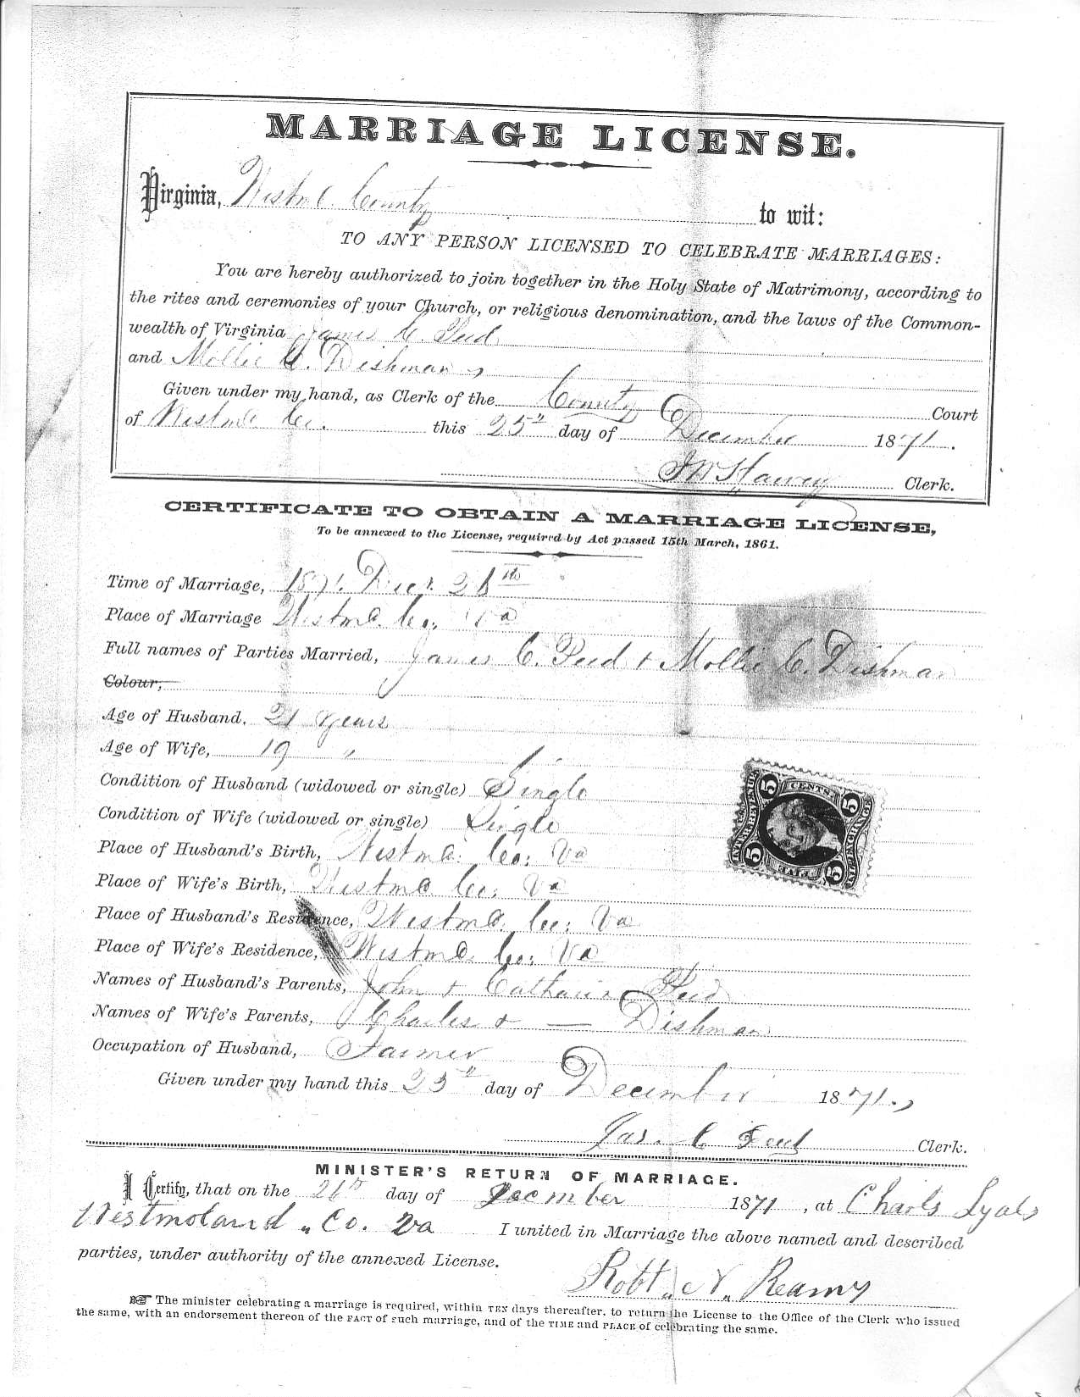 MARRIAGE LICENSE.
Virginia, Westmd. County to wit:
TO ANY PERSON LICENSED TO CELEBRATE MARRIAGES:
You are hereby authorized to join together in the Holy State of Matrimony, according to
the rites and ceremonies of your Church, or religious denomination, and the laws of the Common-
wealth of Virginia James C. Peed
and Mollie C. Dishman,
Given under my hand, as Clerk of the County Court
of Westmd Co. this 25" day of December 1871.
Clerk.
CERTIFICATE TO OBTAIN A MARRIAGE LICENSE,
To be annexed to the License, required by Act passed 15th March, 1861.
Time of Marriage, 1871. Decr. 26th
Place of Marriage Westmd. Co; Va
Full names of Parties Married, James C. Peed & Mollie C. Dishman
Colour,
Age of Husband, 21 years
Age of Wife, 19 "
Condition of Husband (widowed or single) Single
Condition of Wife (widowed or single) Single
Place of Husband's Birth, Westmd. Co; Va
Place of Wife's Birth, Westmd Co; Va
Place of Husband's Residence, Westmd. Co; Va
Place of Wife's Residence, Westmd. Co; Va
Names of Husband's Parents, John & Catharine Peed
Names of Wife's Parents, Charles & — Dishman
Occupation of Husband, Farmer
Given under my hand this 25" day of December 1871.,
Jas. C Peed Clerk.
MINISTER'S RETURN OF MARRIAGE.
I Certify, that on the 26th day of December 1871, at Charls Lyals
Westmoland Co. Va I united in Marriage the above named and described
parties, under authority of the annexed License.
Robt. N. Reamy
The minister celebrating a marriage is required, within TEN days thereafter, to return the License to the Office of the Clerk who issued
the same, with an endorsement thereon of the FACT of such marriage, and of the TIME and PLACE of celebrating the same.
5 CENTS 5
INTER. REVENUE
5 5